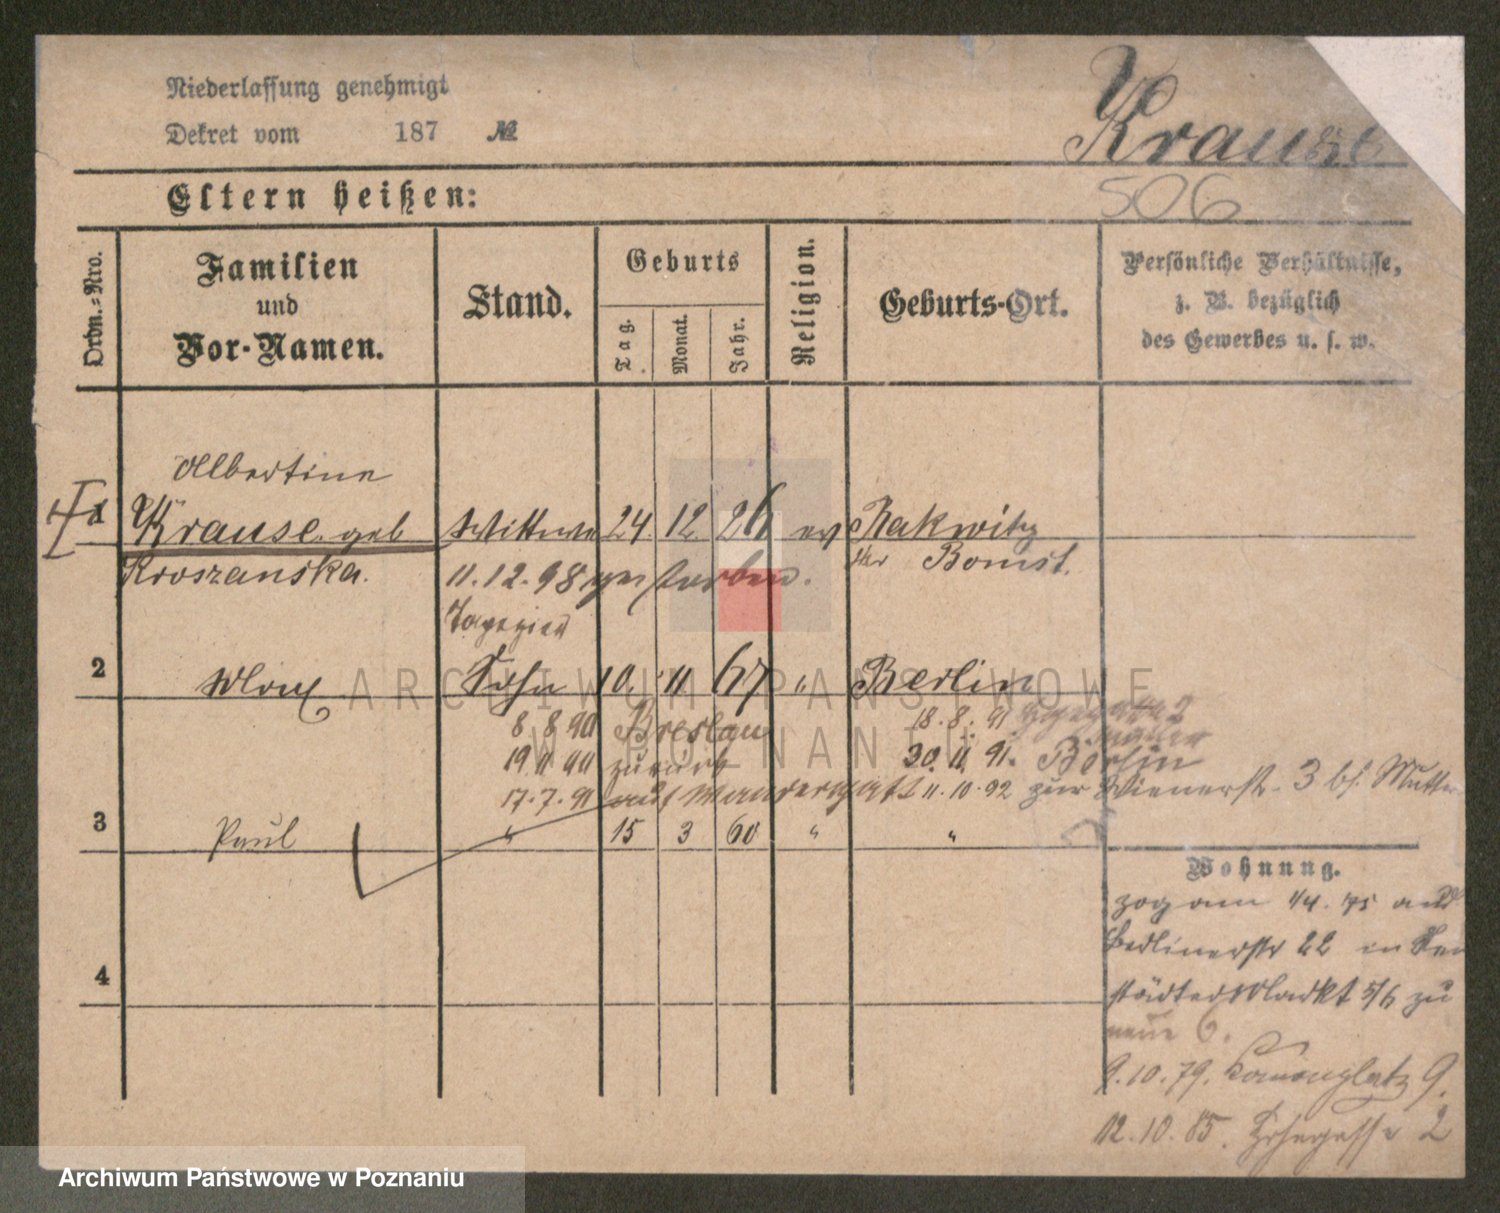 Niederlassung genehmigt
Dekret vom 187 №
Krause
506
Eltern heißen:
Ordn.=Nro.
Familien
und
Vor-Namen.
Stand.
Geburts
Tag.
Monat.
Jahr.
Religion.
Geburts-Ort.
Persönliche Verhältnisse,
z. B. bezüglich
des Gewerbes u. s. w.
Albertine
1 Krause geb Wittwe 24. 12. 26 ev Rakwitz
Kroszanska. 11.12.98 gestorben. Kr Bomst.
2 Max Sohn 10. 11 67 " Berlin
8 8 90 Breslau 18.8.91
19 11 90 zurück 30. 11. 91. Berlin
17.7.91 auf Wanderschaft 11.10.92 zur Wienerstr. 3 bs. Mutter
3 Paul " 15 3 60 " "
4
Wohnung.
zog am 1/4. 75 aus
Berlinerstr 22 in Neu
städter Markt 5/6 zu
neue 6.
9.10.79. Kanonenplatz 9.
12.10.85. 2
ARCHIWUM PAŃSTWOWE
W POZNANIU
Archiwum Państwowe w Poznaniu